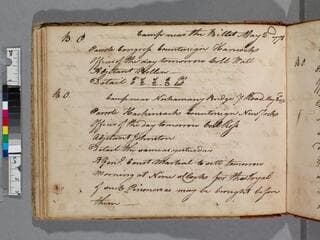 B. O Camp near the Billet May 2d 78
Parole Congress Countersign Hancock
officer of the day tomorrow Coll. Wall
Adjutant Mullen
Detail
B. O. Camp near Neshaminy Bridge
Parole Hackensack Countersign New York
officer of the day tomorrow Coll. Ross
Adjutant Johnston
Detail the same as yesterday
A Genl. Court Martial to sitt tomorrow
Morning at Nine oClock for the tryal
of such Prisoners as may be brought before
them